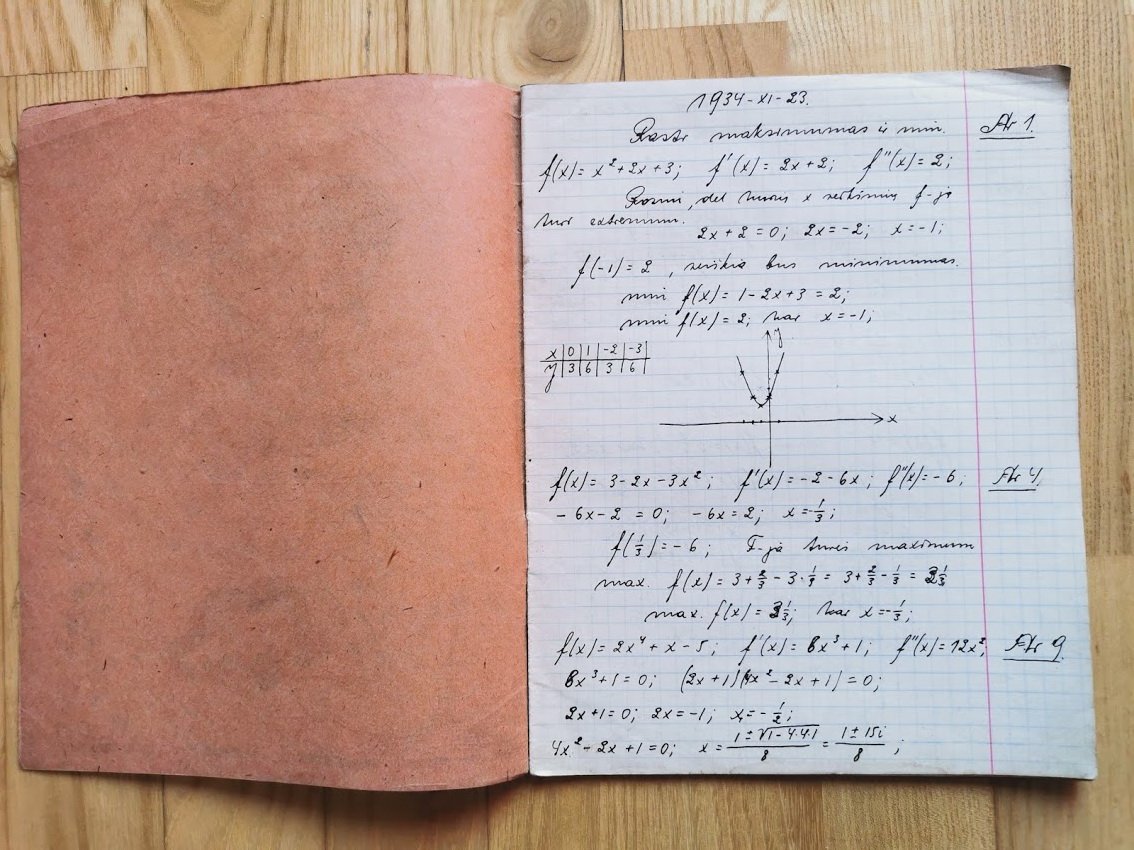 1934-XI-23.
Rasti maksimumas ir min. № 1.
f(x) = x² + 2x + 3; f'(x) = 2x + 2; f''(x) = 2;
x f-ja
turi extremum.
2x + 2 = 0; 2x = -2; x = -1;
f(-1) = 2, reiškia bus minimumas.
min f(x) = 1 - 2x + 3 = 2;
min f(x) = 2; kar x = -1;
y
x | 0 | 1 | -2 | -3
y | 3 | 6 | 3 | 6
x
f(x) = 3 - 2x - 3x²; f'(x) = -2 - 6x; f''(x) = -6; № 4.
-6x - 2 = 0; -6x = 2; x = -1/3;
f(1/3) = -6; F-ja turės maximum
max. f(x) = 3 + 2/3 - 3·1/9 = 3 + 2/3 - 1/3 = 3 1/3
max. f(x) = 3 1/3; kar x = -1/3;
f(x) = 2x⁴ + x - 5; f'(x) = 8x³ + 1; f''(x) = 12x²; № 9.
8x³ + 1 = 0; (2x + 1)(4x² - 2x + 1) = 0;
2x + 1 = 0; 2x = -1; x₁ = -1/2;
4x² - 2x + 1 = 0; x = (1 ± √1 - 4·4·1)/8 = (1 ± 15i)/8;